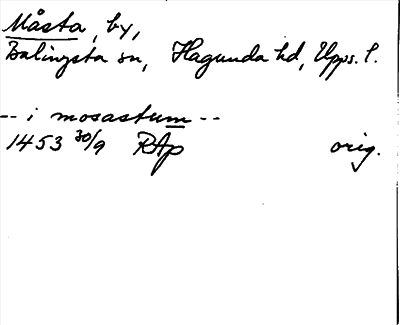 Måsta, by,
Balingsta sn, Hagunda hd, Upps. l.
-- i mosastum --
1453 30/9 RAp orig.